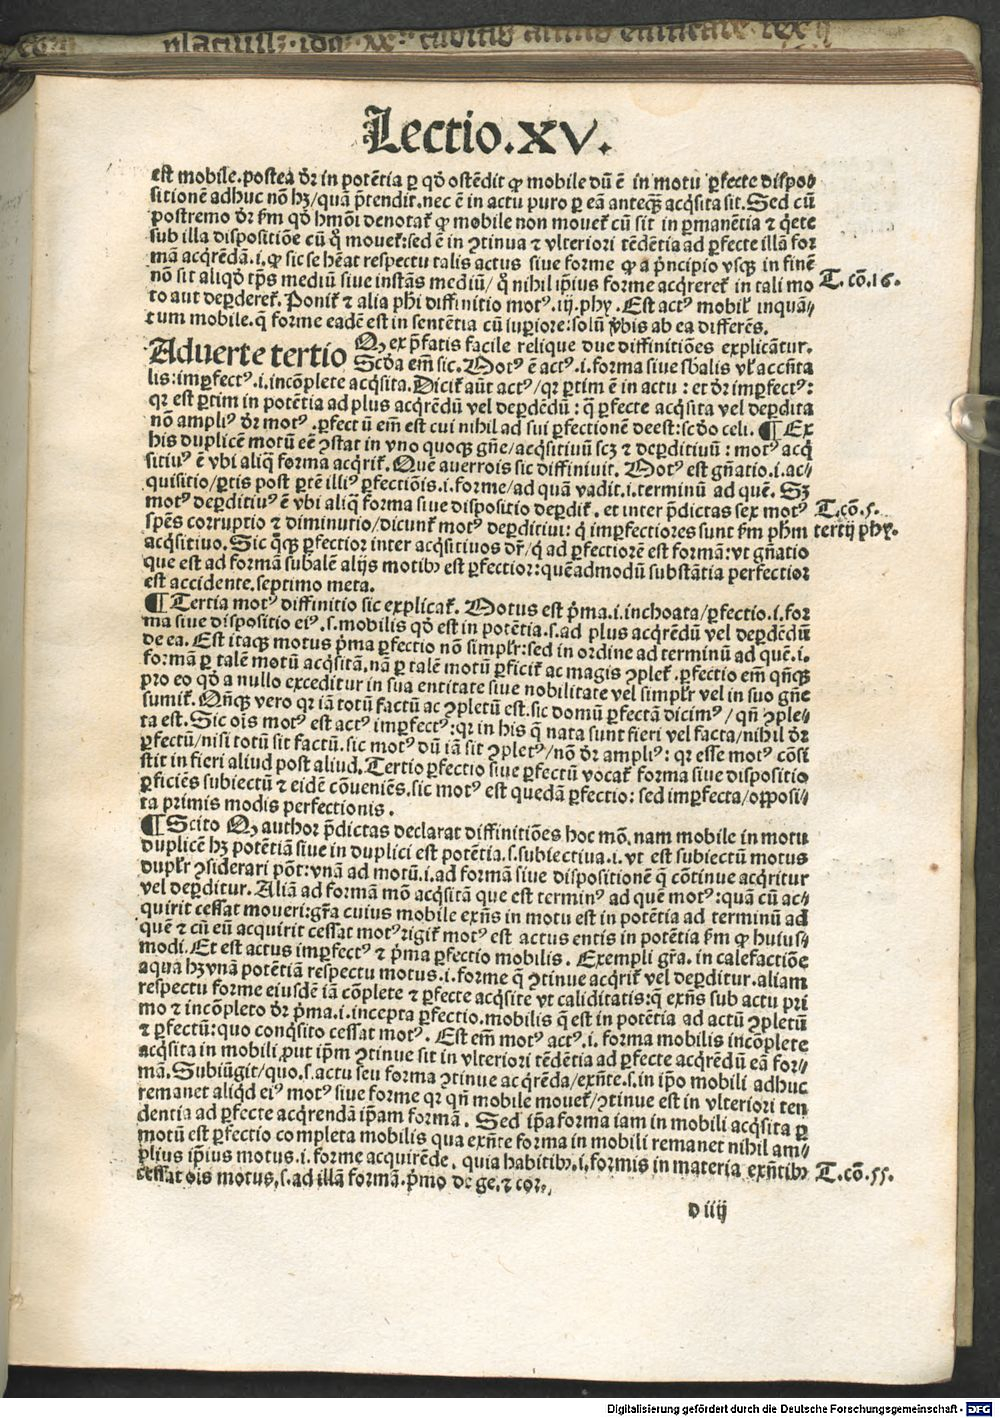 Lectio.XV.
est mobile.postea dr̄ in potētia ꝑ qđ ostēdit ꝙ mobile dū ē in motu ꝑfecte dispo⸗
sitionē adhuc nō hꝫ/quā p̄tendit.nec ē in actu puro ꝑ eā anteqꝫ acq̇sita sit.Sed cū
postremo dr̄ ẜm qđ hmōi denotat̄ ꝙ mobile non mouet̄ cū sit in ꝑmanētia ⁊ q̇ete
sub illa dispositiōe cū q̊ mouet̄:sed ē in ꝯtinua ⁊ vlteriori tēdētia ad ꝑfecte illā for
mā acq̇rēdā.i.ꝙ sic se hēat respectu talis actus siue forme ꝙ a p̄ncipio vsqꝫ in finē
nō sit aliqđ tp̄s mediū siue instās mediū/ q̊ nihil ip̄ius forme acq̇reret̄ in tali mo
T. cō.16.
to aut deꝑderet̄.Ponit̄ ⁊ alia phī diffinitio motꝰ.iij.phy. Est actꝰ mobil̄ inquā⸗
tum mobile.q̄ forme eadē est in sentētia cū suꝑiore:solū v̄bis ab ea differēs.
Aduerte tertio Qꝫ ex p̄fatis facile relique due diffinitiōes explicātur.
Scd̄a em̄ sic.Motꝰ ē actꝰ.i.forma siue sb̄alis vl̄ accn̄ta
lis:imꝑfectꝰ.i.incōplete acq̇sita.Dicit̄ aūt actꝰ/qꝛ ꝑtim ē in actu : et dr̄ imꝑfectꝰ:
qꝛ est ꝑtim in potētia ad plus acq̇rēdū vel deꝑdēdū : q̄ ꝑfecte acq̇sita vel deꝑdita
nō ampliꝰ dr̄ motꝰ .ꝑfect ū em̄ est cui nihil ad sui ꝑfectionē deest:scd̄o celi. ¶ Ex
his duplicē motū eē ꝯstat in vno quoqꝫ gn̄e/acq̇sitiuū scꝫ ⁊ deꝑditiuū : motꝰ acq̇
sitiuꝰ ē vbi aliq̄ forma acq̇rit̄.Quē auerrois sic diffiniuit. Motꝰ est gn̄atio.i.ac⸗
quisitio/ꝑtis post ꝑtē illiꝰ ꝑfectiōis.i.forme/ad quā vadit.i.terminū ad quē. Sꝫ
motꝰ deꝑditiuꝰ ē vbi aliq̄ forma siue dispositio deꝑdit̄. et inter p̄dictas sex motꝰ
T.cō.5.
spēs corruptio ⁊ diminutio/dicunt̄ motꝰ deꝑditiui: q̇ imꝑfectiores sunt ẜm phm̄
tertij phy.
acq̇sitiuo.Sic q̊qꝫ ꝑfectior inter acq̇sitiuos dr̄/q̇ ad ꝑfectiorē est formā:vt gn̄atio
que est ad formā subalē alijs motibꝫ est ꝑfectior:quēadmodū substātia perfectior
est accidente.septimo meta.
¶ Tertia motꝰ diffinitio sic explicat̄. Motus est p̄ma.i.inchoata/ꝑfectio.i.for
ma siue dispositio eiꝰ.s.mobilis qđ est in potētia.s.ad plus acq̇rēdū vel deꝑdēdū
de ea. Est itaqꝫ motus p̄ma ꝑfectio nō simpl̄r:sed in ordine ad terminū ad quē.i.
formā ꝑ talē motū acq̇sitā.nā ꝑ talē motū ꝑficit̄ ac magis ꝯplet̄ .ꝑfectio em̄ qn̄qꝫ
pro eo qđ a nullo exceditur in sua entitate siue nobilitate vel simpl̄r vel in suo gn̄e
sumit̄. Qn̄qꝫ vero qꝛ iā totū factū ac ꝯpletū est.sic domū ꝑfectā dicimꝰ/ qn̄ ꝯple⸗
ta est. Sic ois motꝰ est actꝰ imꝑfectꝰ:qꝛ in his q̄ nata sunt fieri vel facta/nihil dr̄
ꝑfectū/nisi totū sit factū.sic motꝰ dū iā sit ꝯpletꝰ/nō dr̄ ampliꝰ: qꝛ esse motꝰ cōsi
stit in fieri aliud post aliud.Tertio ꝑfectio siue ꝑfectū vocat̄ forma siue dispositio
ꝑficiēs subiectū ⁊ eidē cōueniēs.sic motꝰ est quedā ꝑfectio: sed imꝑfecta/opposi⸗
ta primis modis perfectionis.
¶ Scito Qꝫ author p̄dictas declarat diffinitiōes hoc mō.nam mobile in motu
duplicē hꝫ potētiā siue in duplici est potētia.s.subiectiua.i. vt est subiectū motus
dupl̄r ꝯsiderari pōt:vnā ad motū.i.ad formā siue dispositionē q̄ cōtinue acq̇ritur
vel deꝑditur. Aliā ad formā mō acq̇sitā que est terminꝰ ad quē motꝰ:quā cū ac⸗
quirit cessat moueri:gr̄a cuius mobile exn̄s in motu est in potētia ad terminū ad
quē ⁊ cū eū acquirit cessat motꝰ:igit̄ motꝰ est actus entis in potētia ẜm ꝙ huius⸗
modi. Et est actus imꝑfectꝰ ⁊ p̄ma ꝑfectio mobilis. Exempli gr̄a. in calefactiōe
aqua hꝫ vnā potētiā respectu motus.i.forme q̄ ꝯtinue acq̇rit̄ vel deꝑditur.aliam
respectu forme eiusdē iā cōplete ⁊ ꝑfecte acq̇site vt caliditatis:q̄ exn̄s sub actu pri
mo ⁊ incōpleto dr̄ p̄ma.i.incepta ꝑfectio.mobilis q̄ est in potētia ad actū ꝯpletū
⁊ ꝑfectū:quo conq̇sito cessat motꝰ. Est em̄ motꝰ actꝰ.i. forma mobilis incōplete
acq̇sita in mobili ꝓut ip̄m ꝯtinue sit in vlteriori tēdētia ad ꝑfecte acq̇rēdū eā for⸗
mā.Subiūgit/quo.s.actu seu forma ꝯtinue acq̇rēda/exn̄te.s.in ip̄o mobili adhuc
remanet aliq̇d eiꝰ motꝰ siue forme qꝛ qn̄ mobile mouet̄/ꝯtinue est in vlteriori ten
dentia ad ꝑfecte acq̇rendā ip̄am formā. Sed ip̄a forma iam in mobili acq̇sita ꝑ
motū est ꝑfectio completa mobilis qua exn̄te forma in mobili remanet nihil am⸗
plius ip̄ius motus.i.forme acquirēde. quia habitibꝫ.i.formis in materia exn̄tibꝫ
T.cō.55.
cessat ois motus.s.ad illā formā.p̄mo de ge.⁊ cor.
D iiij
Digitalisierung gefördert durch die Deutsche Forschungsgemeinschaft - DFG